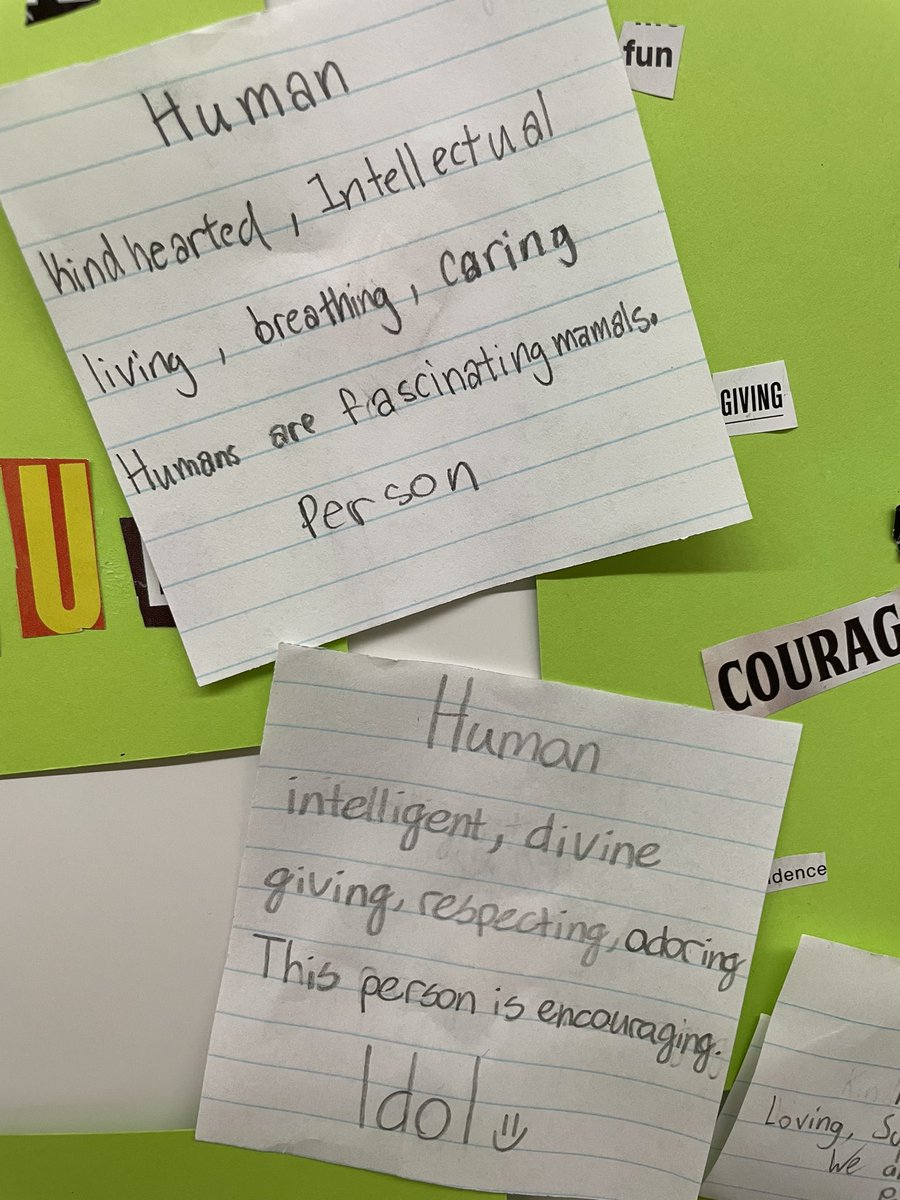 fun
Human
Kindhearted, Intellectual
living, breathing, caring
Humans are fascinating mamals.
Person
GIVING
U
COURAG
Human
intelligent, divine
giving, respecting, adoring
This person is encouraging.
Idol
idence
Loving, Su
We a